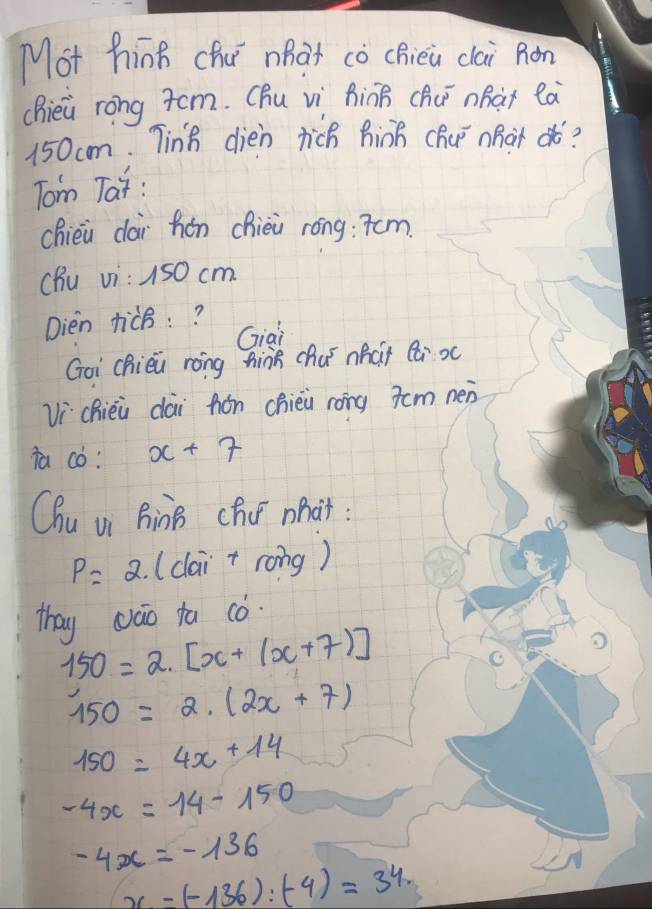 Một hình chữ nhật có chiều dài hơn
chiều rộng 7cm. Chu vi hình chữ nhật là
150cm. Tính diện tích hình chữ nhật đó?
Tóm Tắt:
chiều dài hơn chiều rộng: 7cm.
Chu vi: 150 cm
Diện tích: ?
Giải
Gọi chiều rộng hình chữ nhật là x
Vì chiều dài hơn chiều rộng 7cm nên
ta có: x + 7
Chu vi hình chữ nhật:
P = 2.(dài + rộng)
thay vào ta có.
150 = 2. [x + (x+7)]
150 = 2. (2x + 7)
150 = 4x + 14
-4x = 14 - 150
-4x = -136
x = (-136):(-4) = 34.